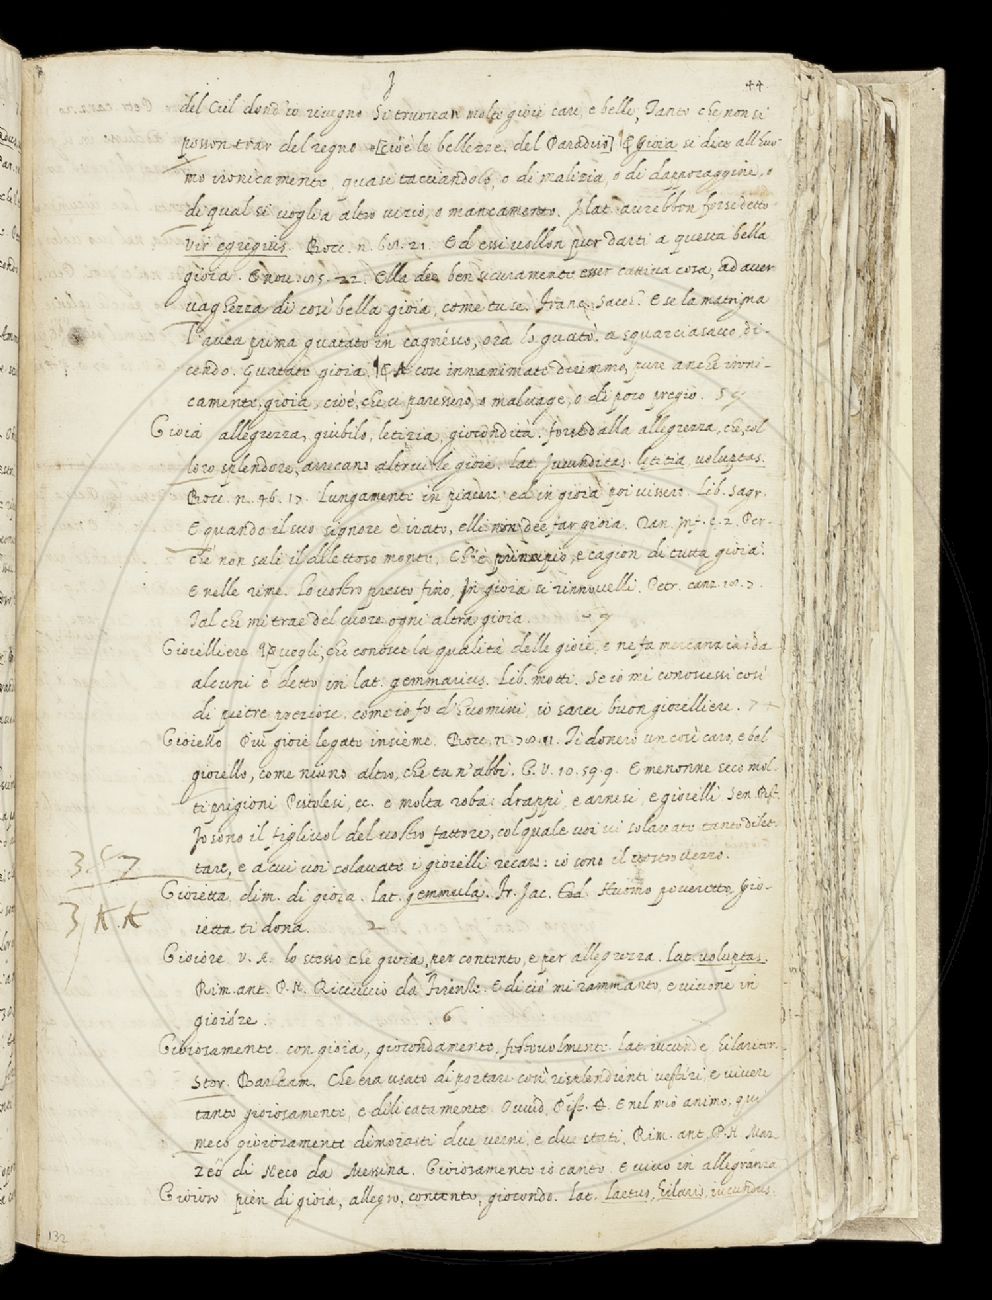 44
del Ciel dond' io rivegno Si truovan molte gioie care, e belle, Tanto che non si
posson trar del regno [cioè le bellezze del Paradiso] ¶ Gioia si dice all' huo-
mo ironicamente, quasi tacciandolo, o di malizia, o di dappocaggine, o
di qual si voglia altro vizio, o mancamento. I lat. avrebbon forse detto
vir egregius. Bocc. n. 21. Ed essi vollon pur darti a questa bella
gioia. E nov. 105. 22. Ella dee ben sicuramente esser cattiva cosa, ad aver
vaghezza di così bella gioia, come tu se. Franc. Sacc. E se la matrigna
l' avea prima guatato in cagnesco, ora lo guatò a squarciasacco, di-
cendo. Guatate gioia. ¶ E A cose innanimate diremmo, pure anche ironi-
camente, gioia, cioè, che ci paressero, o malvage, o di poco pregio.
Gioia allegrezza, giubilo, letizia, giocondità. forse dalla allegrezza, che, col
loro splendore, arrecano altrui le gioie. lat. Jucunditas. letitia, voluptas.
Bocc. n. 46. 17. Lungamente in piacere ed in gioia poi vissero. Lib. Sagr.
E quando il suo signore è irato, elli non dee far gioia. Dan. Inf. c. 2. Per-
che non sali il dilettoso monte, Ch' è principio, e cagion di tutta gioia.
E nelle rime. Lo vostro presio fino, In gioia si rinnovelli. Petr. canz.
Tal che mi trae del cuore ogni altra gioia. 7
Gioielliere Quegli, che conosce la qualità delle gioie, e ne fa mercanzia: da
alcuni è detto in lat. gemmarius. Lib. motti. Se io mi conoscessi così
di pietre preziose, come io fo d' huomini, io sarei buon gioielliere.
Gioiello Più gioie legate insieme. Bocc. n. Ti donerò un così caro, e bel
gioiello, come niuno altro, che tu n' abbi. G. V. 10. 59. 9. E menonne seco mol-
ti prigioni Pistolesi, ec. e molta roba: drappi, e arnesi, e gioielli. Sen. Pist.
Io sono il figliuol del vostro fattore, col quale voi vi solavate tanto dilet-
tare, e a cui voi solavate i gioielli recare: io sono il vostro vezzo.
Gioietta dim. di gioia. lat. gemmula. Fr. Jac. Tod. Huomo poveretto, gio-
ietta ti dona. 2
Gioiore V. A. lo stesso che gioia, per contento, e per allegrezza. lat. voluptas.
Rim. ant. P. N. Riccuccio da Firenze. E di ciò mi rammanto, e vivone in
gioiore. 6
Gioiosamente con gioia, giocondamente, festevolmente. lat. iucunde, hilariter.
Stor. Barlaam. Che era usato di portare così risplendenti vestiri, e vivere
tanto gioiosamente, e dilicatamente. Ovvid. Pist. E nel mio animo, qui
meco gioiosamente dimorasti due verni, e due stati. Rim. ant. P. N. Maz-
zeo di Neco da Messina. Gioiosamente io canto. E vivo in allegranza.
Gioioso pien di gioia, allegro, contento, giocondo. lat. laetus, hilaris, iucundus.
132